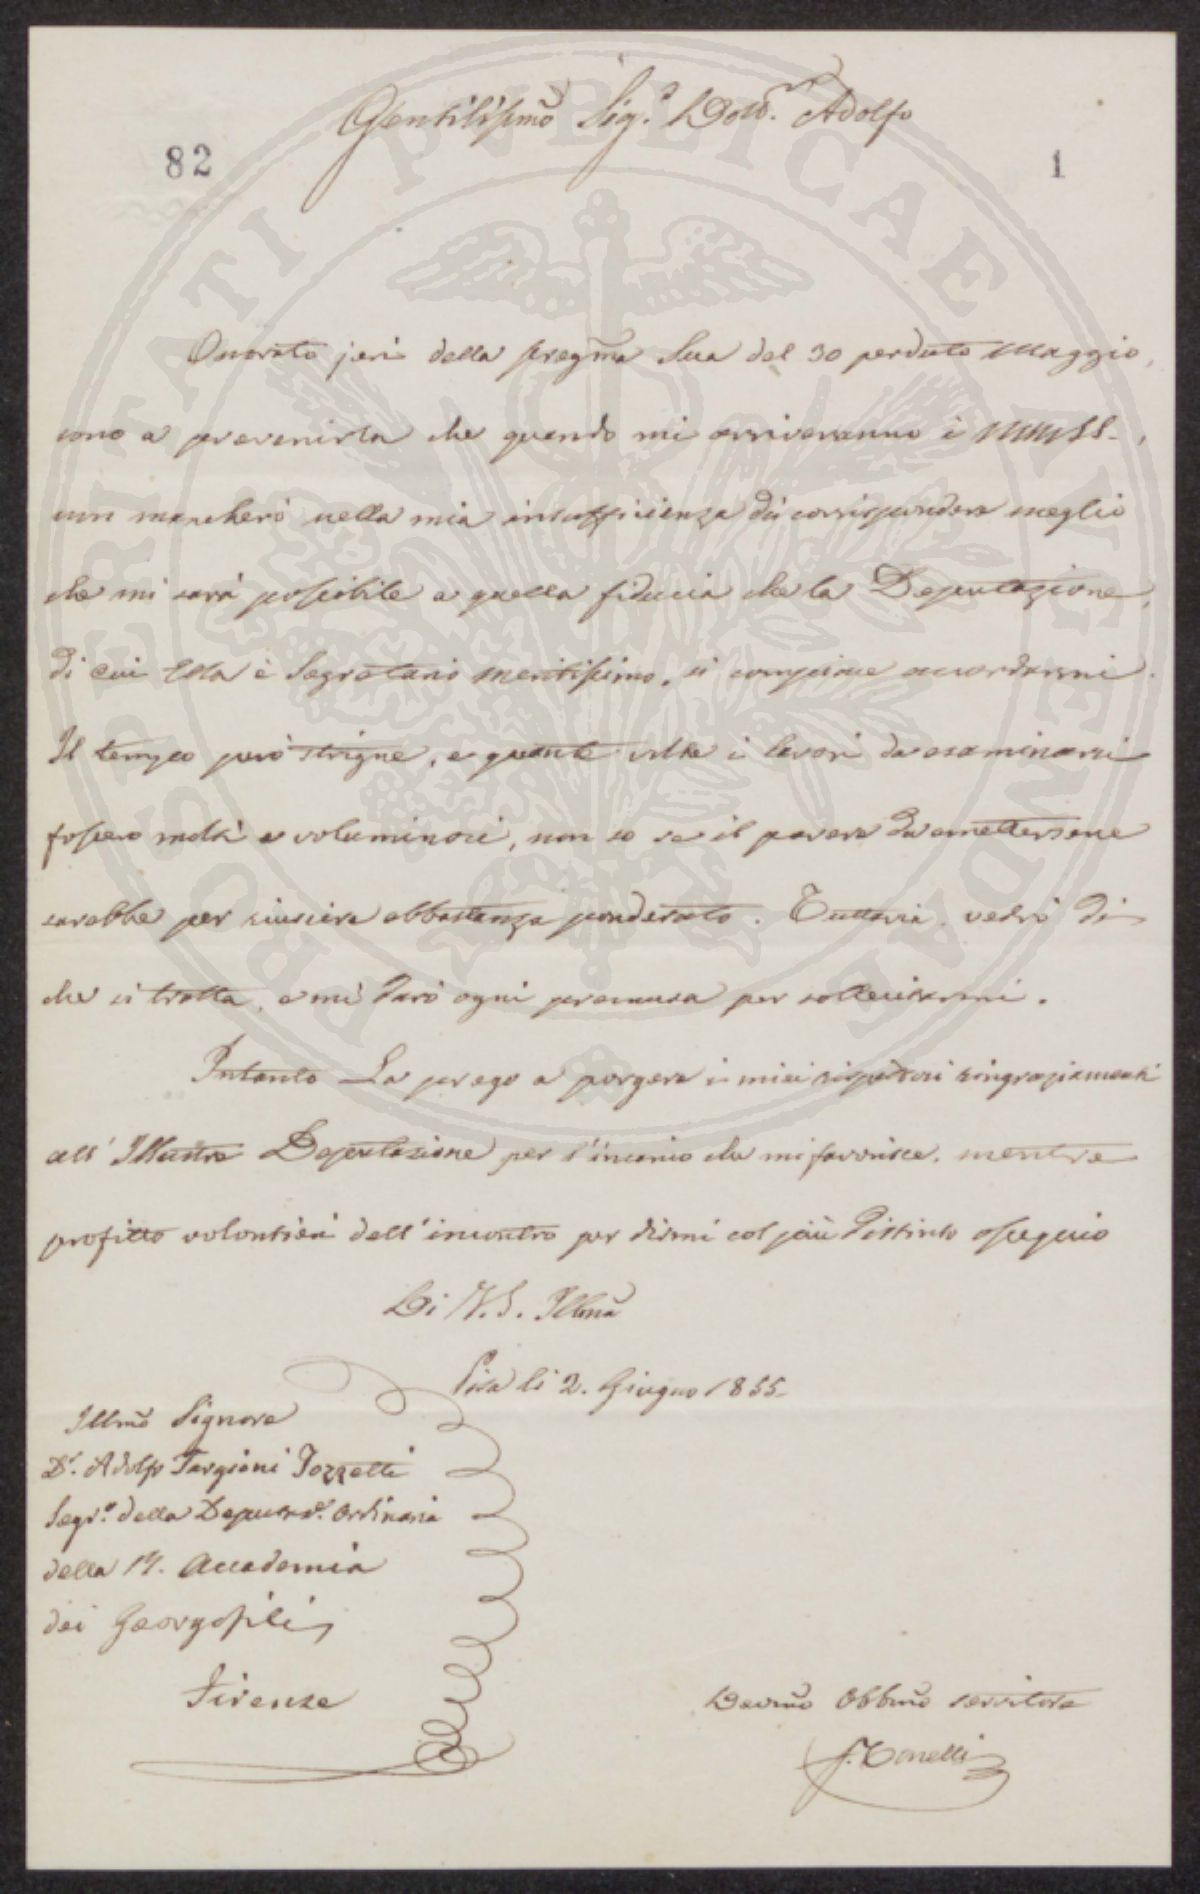 Gentilissmo Sig.r Dott. Adolfo
82
1
Onorato jeri della pregma Sua del 30 perduto Maggio,
sono a prevenirla che quando mi arriveranno i MMSS.,
non mancherò nella mia insufficienza di corrispondere meglio
che mi sarà possibile a quella fiducia che la Deputazione,
di cui Ella è Segretario meritissimo, si compiace accordarmi.
Il tempo però strigne, e quante volte i lavori da esaminarsi
fossero molti e voluminosi, non so se il parere da emettersene
sarebbe per riuscire abbastanza ponderato. Tuttavia vedrò di
che si tratta, e mi darò ogni premura per sollecitarmi.
Intanto La prego a porgere i miei rispettosi ringraziamenti
all' Illustre Deputazione per l'incarico che mi favorisce, mentre
profitto volontieri dell'incontro per dirmi col più distinto ossequio
Di V.S. Illma
Pisa li 2. Giugno 1855.
Illmo Signore
Dr. Adolfo Targioni Tozzetti
Segro. della Deputaze. Ordinaria
della R. Accademia
dei Georgofili
Firenze
Devmo Obbmo servitore
PROSPERITATI PUBLICAE AUGENDAE